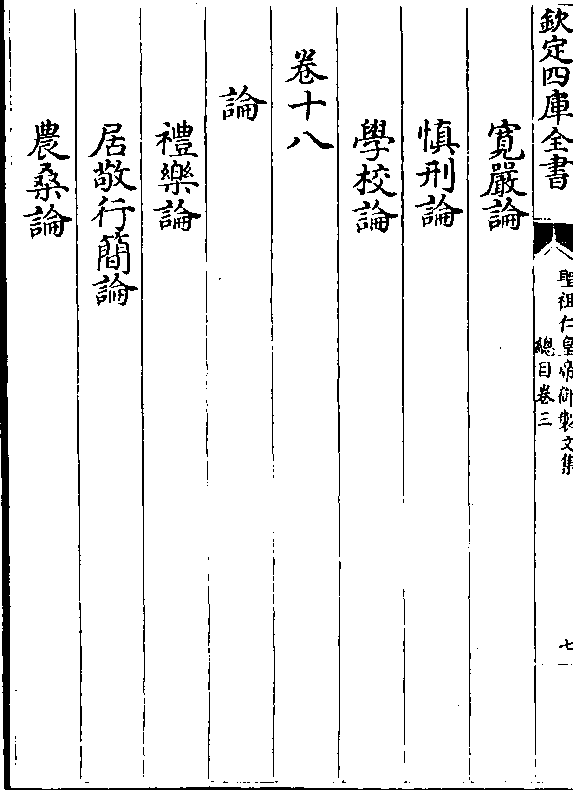 欽定四庫全書
聖祖仁皇帝御製文集
總目卷三
七
寛嚴論
慎刑論
學校論
卷十八
論
禮樂論
居敬行簡論
農桑論